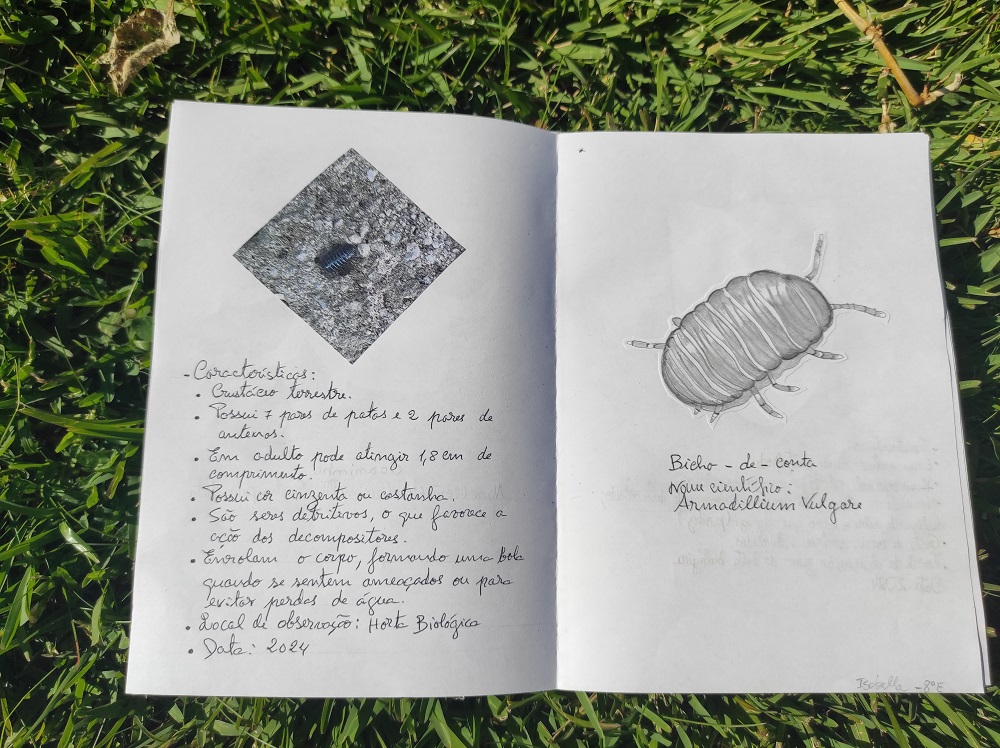 - Características:
• Crustáceo terrestre.
• Possui 7 pares de patas e 2 pares de
antenas.
• Em adulto pode atingir 1,8 cm de
comprimento.
• Possui cor cinzenta ou castanha.
• São seres detritivos, o que favorece a
ação dos decompositores.
• Enrolam o corpo, formando uma bola
quando se sentem ameaçados ou para
evitar perdas de água.
• Local de observação: Horta Biológica
• Data: 2024
Bicho-de-conta
Nome científico:
Armadillium Vulgare
Isabella - 8ºE